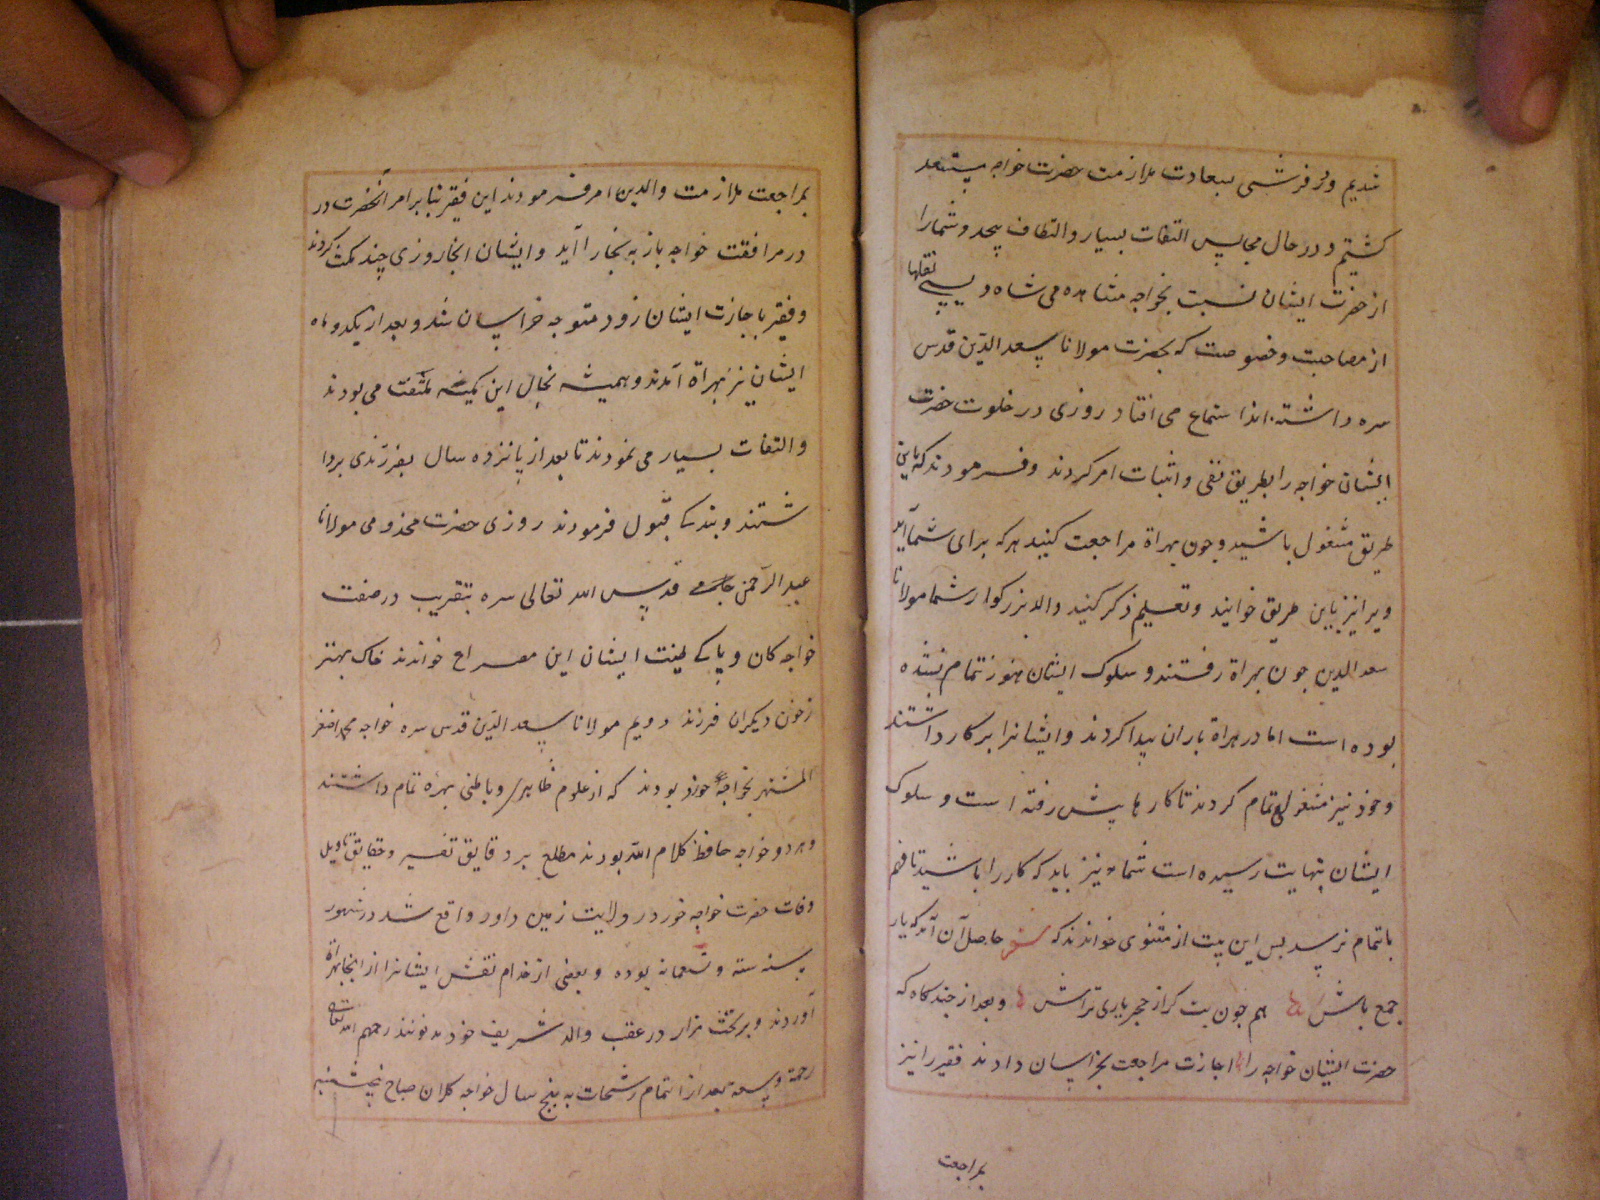 شدیم و در قرشی بسعادت ملازمت حضرت خواجه مستعد
کشتیم و در حال مجالس التفات بسیار و الطاف بیحد و شمار را
از حضرت ایشان نسبت بخواجه مشاهده می شاه و بسی نقلها
از مصاحبت و خصوصیت که بحضرت مولانا سعد الدین قدس
سره داشته اند استماع می افتاد روزی در خلوت حضرت
ایشان خواجه را بطریق نفی و اثبات امر کردند و فرمودند که باین
طریق مشغول باشید و چون بهراة مراجعت کنید هر که برای شما آید
ویرا نیز باین طریق خوانید و تعلیم ذکر کنید والد بزرکوار شما مولانا
سعد الدین چون بهراة رفتند و سلوک ایشان هنوز تمام نشده
بوده است اما در هراة یاران پیدا کردند و ایشانرا بر کار داشتند
و خود نیز مشغولی تمام کردند تا کارها پیش رفته است و سلوک
ایشان بنهایت رسیده است شما نیز باید که کار را باشید تا فهم
باتمام نرسد پس این بیت از مثنوی خواندند که شعر حاصل آن آمد که یار
جمع باش هم چون بت کر از حجر یاری تراش و بعد از چند کاه که
حضرت ایشان خواجه را اجازت مراجعت بخراسان دادند فقیر را نیز
بمراجعت
بمراجعت ملازمت والدین امر فرمودند این فقیر بنا بر امر آنحضرت در
در مرافقت خواجه باز به بخارا آید و ایشان آنجا روزی چند مکث کردند
و فقیر باجازت ایشان زود متوجه خراسان شد و بعد از یکدو ماه
ایشان نیز بهراة آمدند و همیشه بحال این کمینه ملتفت می بودند
و التفات بسیار می نمودند تا بعد از پانزده سال بفرزندی بردا
شتند و بندکی قبول فرمودند روزی حضرت مخدومی مولانا
عبد الرحمن جامی قدس الله تعالی سره بتقریب در صفت
خواجه کان و پاکی طینت ایشان این مصراع خواندند خاک بهتر
زخون دیکران فرزند دویم مولانا سعد الدین قدس سره خواجه محمد اصغر
المشتهر بخواجه خورد بودند که از علوم ظاهری و باطنی بهره تمام داشتند
و هر دو خواجه حافظ کلام الله بودند مطلع بر دقایق تفسیر و حقایق تاویل
وفات حضرت خواجه خورد در ولایت زمین داور واقع شد در شهور
سنه ستة و تسعمائه بوده و بعضی از خدام نقش ایشانرا از انجا بهراة
آوردند و بر تخت مزار در عقب والد شریف خود مدفونند رحمهم الله تعالی
رحمة واسعة بعد از اتمام رشحات به پنج سال خواجه کلان صباح پنجشنبه